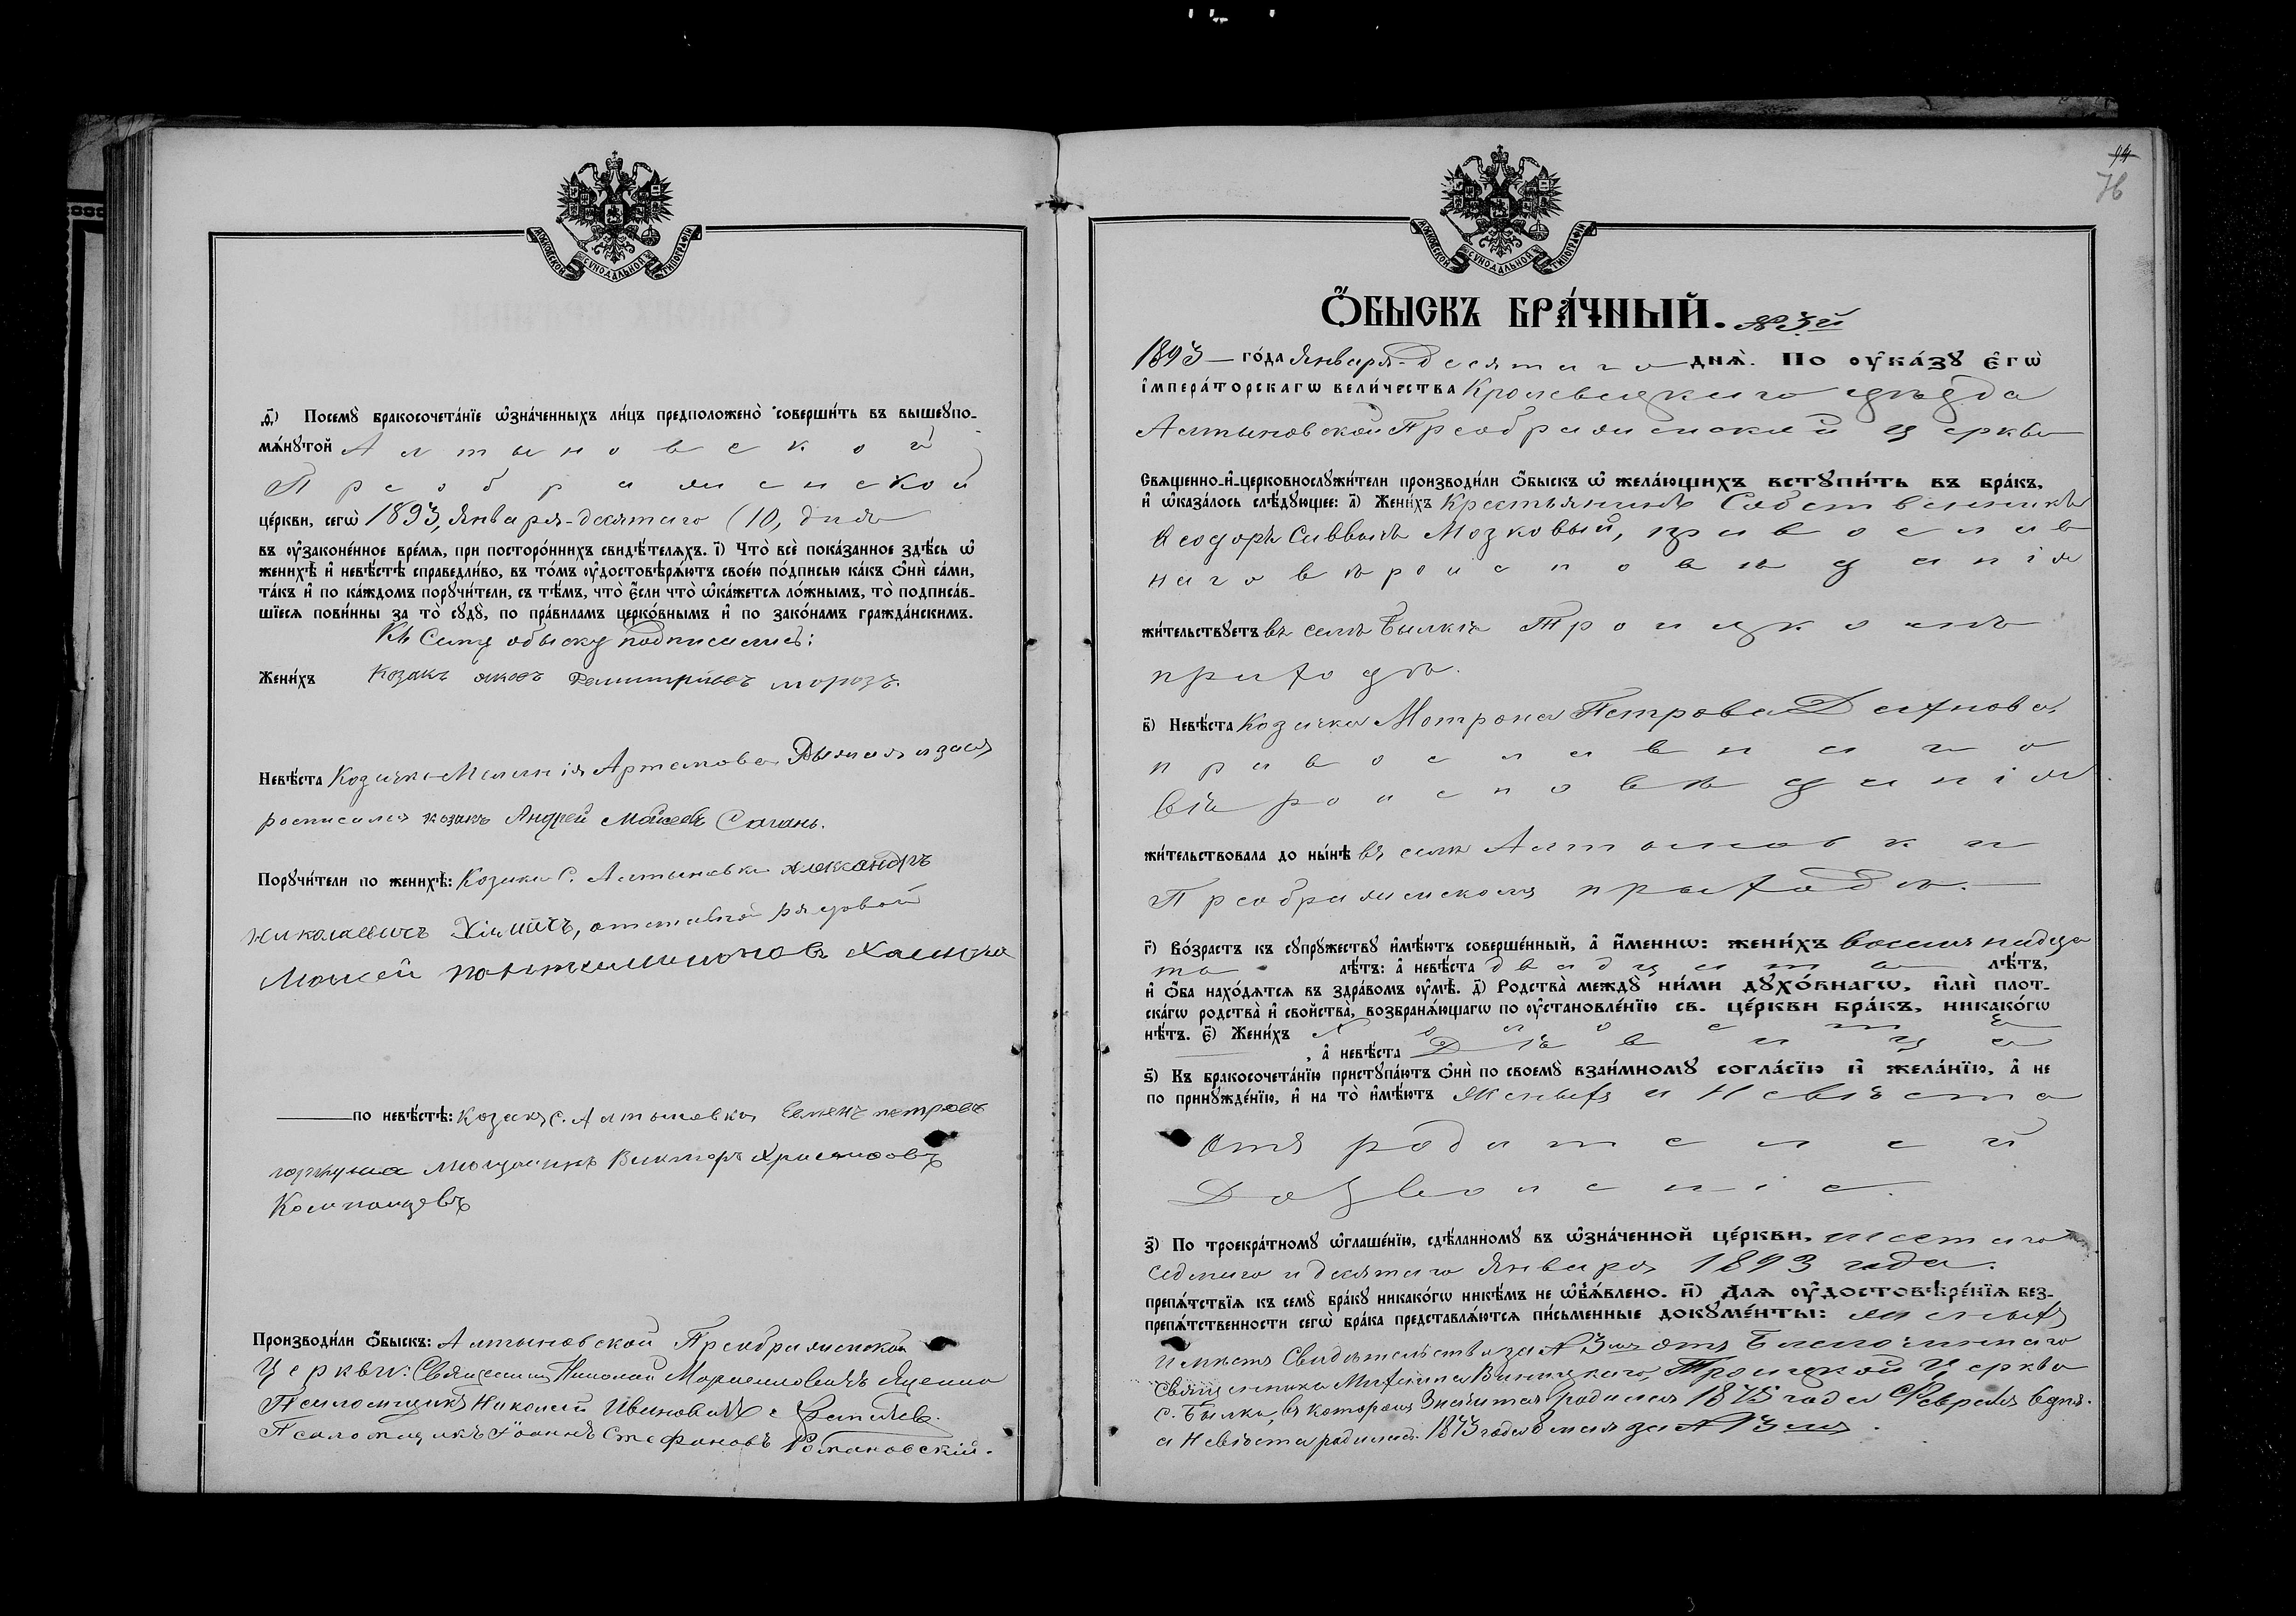 МОСКОВСКОЙ СѴНОДАЛЬНОЙ ТИПОГРАФІИ
ѳ҃) Посемꙋ̀ бракосочета́нїе ѡ҆зна́ченныхъ ли́цъ предположено̀ соверши́ть въ вышеꙋпо-
мѧ́нꙋтой Алтыновской
Преображенской
це́ркви, сегѡ̀ 1893, Января-десятаго (10, дня
въ ᲂу҆законе́нное вре́мѧ, при посторо́ннихъ свидѣ́телѧхъ. і҃) Что̀ всѐ пока́занное здѣ́сь ѡ҆
женихѣ̀ и҆ невѣ́стѣ справедли́во, въ то́мъ ᲂу҆достовѣрѧ́ютъ свое́ю по́дписью ка́къ ѻ҆нѝ са́ми,
та́къ и҆ по ка́ждомъ порꙋчи́тели, съ тѣ́мъ, что̀ є҆́сли что̀ ѡ҆ка́жетсѧ ло́жнымъ, то̀ подписа́в-
шїесѧ пови́нны за то̀ сꙋдꙋ̀, по пра́виламъ церко́внымъ и҆ по зако́намъ гражда́нскимъ.
Къ Сему обыску подписались:
Жени́хъ Козакъ Яковъ Демитріевъ морозъ.
Невѣ́ста Козачка Меланія Артемова а занея
росписался козакъ Андрей Моисеевъ Сагань.
Порꙋчи́тели по женихѣ̀: Козаки С. Алтыновки Александръ
николаевичъ отставной рядовой
Моисей
по невѣ́стѣ: Козаки С. Алтыновки Евменъ петровъ
мещанинъ Викторъ
Компанцевъ
Производи́ли ѻ҆́быскъ: Алтыновской Преображенской
Церкви: Священникъ Николай Яценко
Псаломщикъ Николай Ивановичъ
Псаломщикъ Іоаннъ Стефановъ Романовскій.
94
76
МОСКОВСКОЙ СѴНОДАЛЬНОЙ ТИПОГРАФІИ
Ѻ҆́БЫСКЪ БРА́ЧНЫЙ. № 3й
1893 — го́да Января-десятаго днѧ̀. По ᲂу҆ка́зꙋ є҆гѡ̀
и҆мпера́торскагѡ вели́чества Кролевецкаго уѣзда
Алтыновской Преображенской церкви
Свѧщенно-и҆-церковнослꙋжи́тели производи́ли ѻ҆́быскъ ѡ҆ жела́ющихъ встꙋпи́ть въ бра́къ,
и҆ ѡ҆каза́лось слѣ́дꙋющее: а҃) Жени́хъ Крестьянинъ Собственникъ
Ѳеодоръ Саввичъ Мозковый, православ
наго вѣроисповѣданія
жи́тельствꙋетъ въ селѣ Былкѣ Троицкомъ
приходѣ.
в҃) Невѣ́ста Козачка Мотрона Петрова Дахнова,
православнаго
вѣроисповѣданія
жи́тельствовала до ны́нѣ въ селѣ Алтыновки
Преображенскомъ приходѣ. —
г҃) Во́зрастъ къ сꙋпрꙋ́жествꙋ и҆мѣ́ютъ соверше́нный, а҆ и҆́меннѡ: жени́хъ восемнадца
ти лѣ́тъ: а҆ невѣ́ста двадцати лѣ́тъ,
и҆ ѻ҆́ба нахо́дѧтсѧ въ здра́вомъ ᲂу҆мѣ̀. д҃) Родства̀ междꙋ̀ ни́ми дꙋхо́внагѡ, и҆лѝ плот-
ска́гѡ родства̀ и҆ сво́йства, возбранѧ́ющагѡ по ᲂу҆становле́нїю св. це́ркви бра́къ, никако́гѡ
нѣ́тъ. є҃) Жени́хъ Холостъ
, а҆ невѣ́ста Дѣвица
ѕ҃) Къ бракосочета́нїю пристꙋпа́ютъ ѻ҆нѝ по своемꙋ̀ взаи́мномꙋ согла́сїю и҆ жела́нїю, а҆ не
по принꙋжде́нїю, и҆ на то̀ и҆мѣ́ютъ Женихъ и Невѣста
отъ родителей
Дозволеніе.
з҃) По троекра́тномꙋ ѡ҆глаше́нїю, сдѣ́ланномꙋ въ ѡ҆зна́ченной це́ркви, шестаго
седмаго и десятаго Января 1893 года.
препѧ́тствїѧ къ семꙋ̀ бра́кꙋ никако́гѡ никѣ́мъ не ѡ҆б̾ѧ́влено. и҃) Длѧ ᲂу҆достовѣре́нїѧ без-
препѧ́тственности сегѡ̀ бра́ка представлѧ́ютсѧ пи́сьменные докꙋме́нты: женихъ
Имѣетъ Свидѣтельство за № 3мъ отъ Благочиннаго
Священника Троицкой Церкви
с. Былки, въ которомъ Значится родился 1875 года Февраля 6 дня.
а Невѣста родилась 1873 года за № 13мъ.